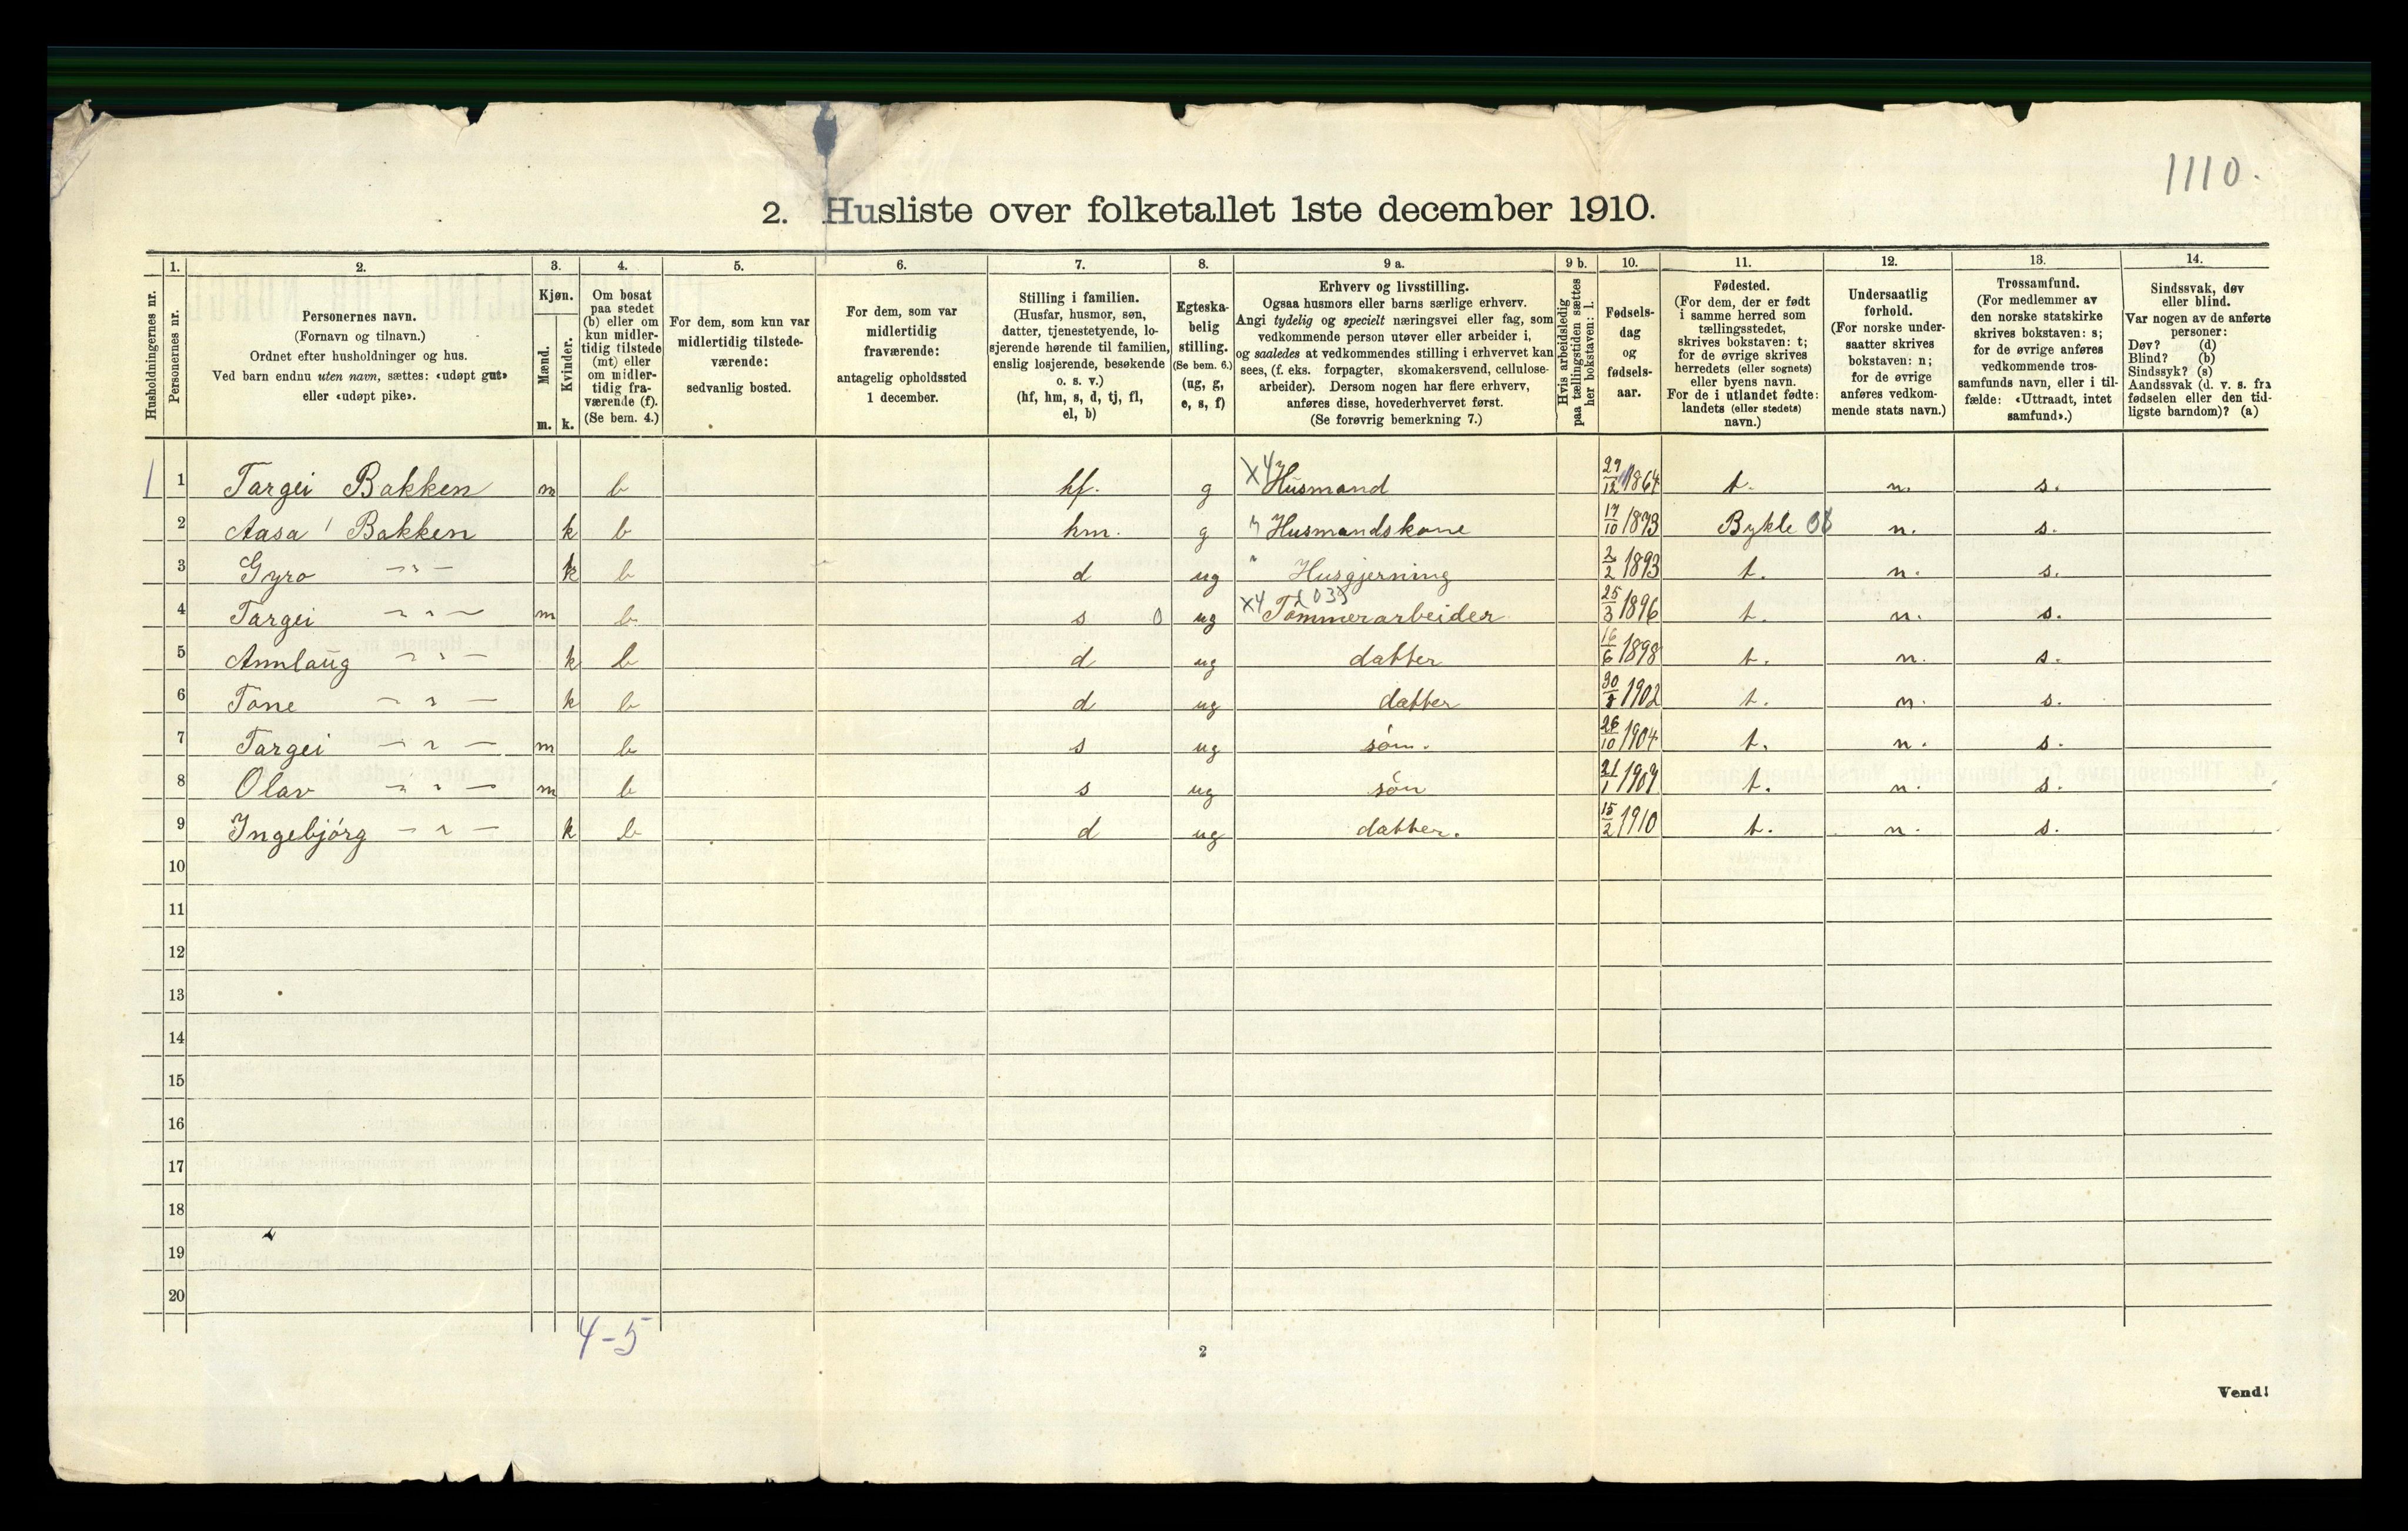 1110.
2. Husliste over folketallet 1ste december 1910.
Husholdningernes nr.
1.
Personernes nr.
2.
Personernes navn.
(Fornavn og tilnavn.)
Ordnet efter husholdninger og hus.
Ved barn endnu uten navn, sættes: «udøpt gut»
eller «udøpt pike».
3.
Kjøn.
Mænd.
Kvinder.
m. k.
4.
Om bosat
paa stedet
(b) eller om
kun midler-
tidig tilstede
(mt) eller
om midler-
tidig fra-
værende (f).
(Se bem. 4.)
5.
For dem, som kun var
midlertidig tilstede-
værende:
sedvanlig bosted.
6.
For dem, som var
midlertidig
fraværende:
antagelig opholdssted
1 december.
7.
Stilling i familien.
(Husfar, husmor, søn,
datter, tjenestetyende, lo-
sjerende hørende til familien,
enslig losjerende, besøkende
o. s. v.)
(hf, hm, s, d, tj, fl,
el, b)
8.
Egteska-
belig
stilling.
(Se bem. 6.)
(ug, g,
e, s, f)
9 a.
Erhverv og livsstilling.
Ogsaa husmors eller barns særlige erhverv.
Angi tydelig og specielt næringsvei eller fag, som
vedkommende person utøver eller arbeider i,
og saaledes at vedkommendes stilling i erhvervet kan
sees, (f. eks. forpagter, skomakersvend, cellulose-
arbeider). Dersom nogen har flere erhverv,
anføres disse, hovederhvervet først.
(Se forøvrig bemerkning 7.)
9 b.
Hvis arbeidsledig
paa tællingstiden sættes
her bokstaven: l.
10.
Fødsels-
dag
og
fødsels-
aar.
11.
Fødested.
(For dem, der er født
i samme herred som
tællingsstedet,
skrives bokstaven: t;
for de øvrige skrives
herredets (eller sognets)
eller byens navn.
For de i utlandet fødte:
landets (eller stedets)
navn.)
12.
Undersaatlig
forhold.
(For norske under-
saatter skrives
bokstaven: n;
for de øvrige
anføres vedkom-
mende stats navn.)
13.
Trossamfund.
(For medlemmer av
den norske statskirke
skrives bokstaven: s;
for de øvrige anføres
vedkommende tros-
samfunds navn, eller i til-
fælde: «Uttraadt, intet
samfund».)
14.
Sindssvak, døv
eller blind.
Var nogen av de anførte
personer:
Døv? (d)
Blind? (b)
Sindssyk? (s)
Aandssvak (d. v. s. fra
fødselen eller den tid-
ligste barndom)? (a)
1 1 Targei Bakken m b hf. g X4 Husmand 29/12 1864 t. n. s.
2 Aasa Bakken k b hm. g " Husmandskone 10 1873 Bykle 08 n. s.
3 Gyro — " — k b d ug " Husgjerning 2/2 1893 t. n. s.
4 Targei — " — m b s 0 ug X4 Tømmerarbeider 25/3 1896 t. n. s.
5 Annlaug — " — k b d ug datter 16/6 1898 t. n. s.
6 Tone — " — k b d ug datter 30 1902 t. n. s.
7 Targei — " — m b s ug søn. 26/10 1904 t. n. s.
8 Olav — " — m b s ug søn 21/1 1907 t. n. s.
9 Ingebjørg — " — k b d ug datter. 15/2 1910 t. n. s.
10
11
12
13
14
15
16
17
18
19
20
4-5
2
Vend!